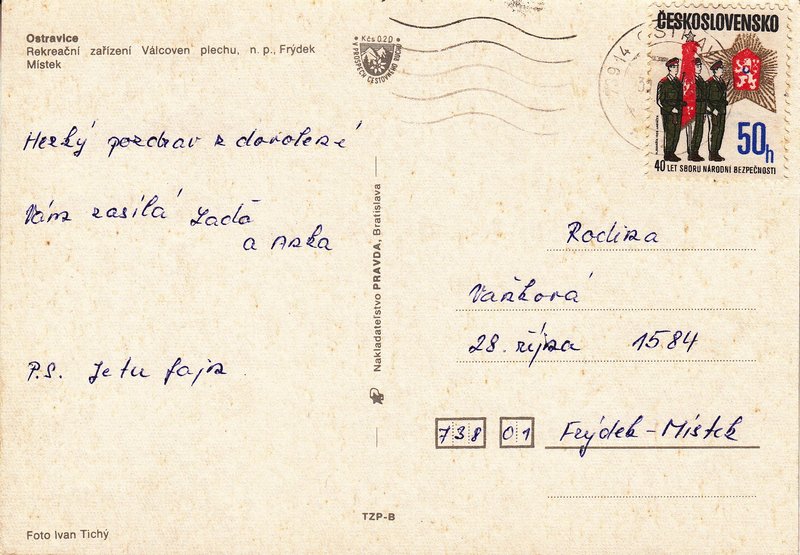 Ostravice
Rekreační zařízení Válcoven plechu, n. p., Frýdek
Místek
Kčs 0.20
V PROSPĚCH CESTOVNÍHO RUCHU
ČESKOSLOVENSKO
50h
40 LET SBORU NÁRODNÍ BEZPEČNOSTI
Hezký pozdrav z dovolené
Vám zasílá Lada
a Anka
P.S. Je tu fajn
Nakladateľstvo PRAVDA, Bratislava
Rodina
Vaňková
28. října 1584
738 01 Frýdek-Místek
TZP-B
Foto Ivan Tichý